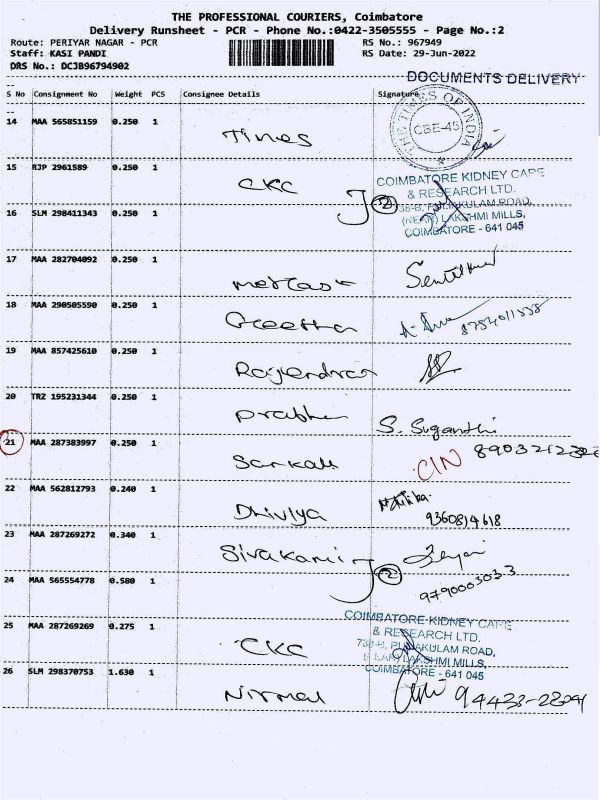 THE PROFESSIONAL COURIERS, Coimbatore
Delivery Runsheet - PCR - Phone No.:0422-3505555 - Page No.:2
Route: PERIYAR NAGAR - PCR RS No.: 967949
Staff: KASI PANDI RS Date: 29-Jun-2022
DRS No.: DCJB96794902
DOCUMENTS DELIVERY
S No Consignment No Weight PCS Consignee Details Signature
14 MAA 565851159 0.250 1
Times
THE TIMES OF INDIA
CBE-45
15 RJP 2961589 0.250 1
CKC
2
COIMBATORE KIDNEY CARE
& RESEARCH LTD.
LAKSHMI MILLS,
COIMBATORE - 641 045
16 SLM 298411343 0.250 1
17 MAA 282704092 0.250 1
18 MAA 290505590 0.250 1
Geetha
19 MAA 857425610 0.250 1
Rajendran
20 TRZ 195231344 0.250 1
Prabhu S. Suganthi
21 MAA 287383997 0.250 1
CIN
22 MAA 562812793 0.240 1
Dhivya
9360814618
23 MAA 287269272 0.340 1
Sivakami
2
9790003033
24 MAA 565554778 0.580 1
COIMBATORE KIDNEY CARE
& RESEARCH LTD.
25 MAA 287269269 0.275 1
CKC
LAKSHMI MILLS,
COIMBATORE - 641 045
26 SLM 298370753 1.630 1
Nirmal